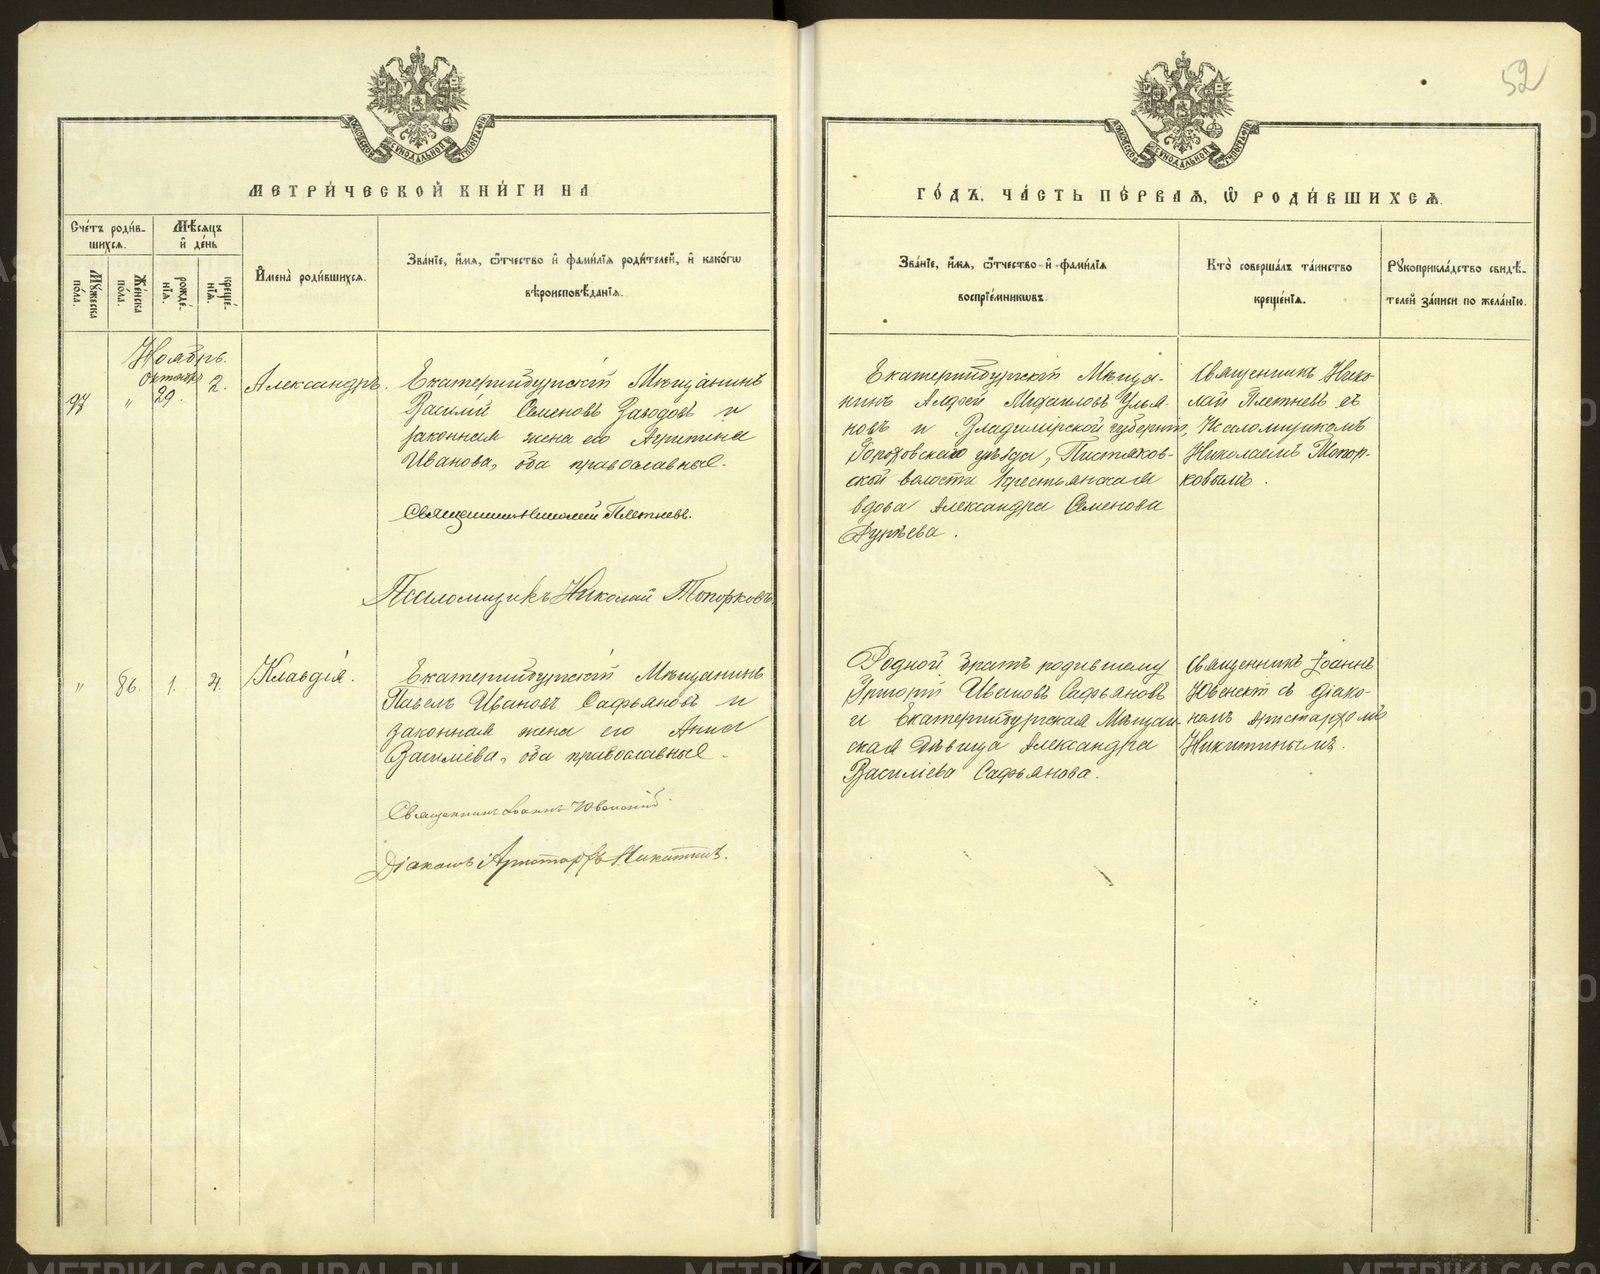 52
МЕТРИ́ЧЕСКОЙ КНИ́ГИ НА
ГО́ДЪ, ЧА́СТЬ ПЕ́РВАѦ, Ѿ РОДИ́ВШИХСѦ.
Сче́тъ роди́в-
шихсѧ.
Мѣ́сѧцъ
и҆ де́нь
Мꙋ́жеска
по́ла.
Же́нска
по́ла.
рожде́-
нїѧ.
креще́-
нїѧ.
И҆мена̀ роди́вшихсѧ.
Зва́нїе, и҆́мѧ, ѻ҆́тчество и҆ фами́лїѧ роди́телей, и҆ како́гѡ
вѣроисповѣ́данїѧ.
Зва́нїе, и҆́мѧ, ѻ҆́тчество и҆ фами́лїѧ
воспрїе́мникѡвъ.
Кто̀ соверша́лъ та́инство
креще́нїѧ.
Рꙋкоприкла́дство свидѣ́-
телей за́писи по жела́нїю.
Ноябрь.
Октября
97 " 29. 2. Александръ.
Екатеринбургскій Мѣщанинъ
Василій Семеновъ и
законная жена его Агрипина
Иванова, оба православные.
Священникъ Николай Плетневъ.
Псаломщикъ Николай Топорковъ.
Екатеринбургскій Мѣща-
нинъ Алфей Михаиловъ Улья-
новъ и Владимірской губерніи,
Гороховскаго уѣзда,
ской волости крестьянская
вдова Александра Семенова
Гурѣева.
Священникъ Нико-
лай Плетневъ съ
Псаломщикомъ
Николаемъ Топор-
ковымъ.
" 86. 1. 4. Клавдія.
Екатеринбургскій Мѣщанинъ
Павелъ Ивановъ Сафьяновъ и
законная жена его Анна
Василіева, оба православные.
Священникъ Іоаннъ Ювенскій.
Діаконъ Аристархъ Никитинъ.
Родной братъ родившему
Григорій Ивановъ Сафьяновъ
и Екатеринбургская Мѣщан-
ская дѣвица Александра
Василіева Сафьянова.
Священникъ Іоаннъ
Ювенскій съ діако-
номъ Аристархомъ
Никитинымъ.
METRIKI.GASO-URAL.RU